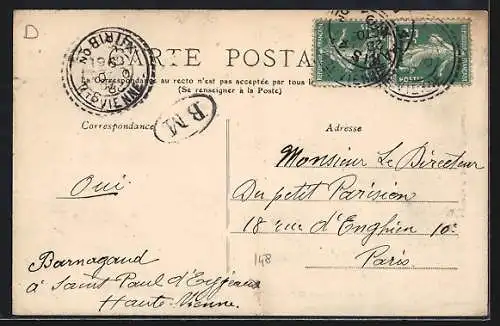 D
CARTE POSTALE
La Correspondance au recto n'est pas acceptée par tous
(Se renseigner à la Poste)
Hte VIENNE
BM
Correspondance
Adresse
Monsieur Le Directeur
Oui
Du petit Parisien
18 rue d'Enghien 10e
Paris.
148
Barnagaud
à Saint Paul d'Eyjeaux
Haute-Vienne.